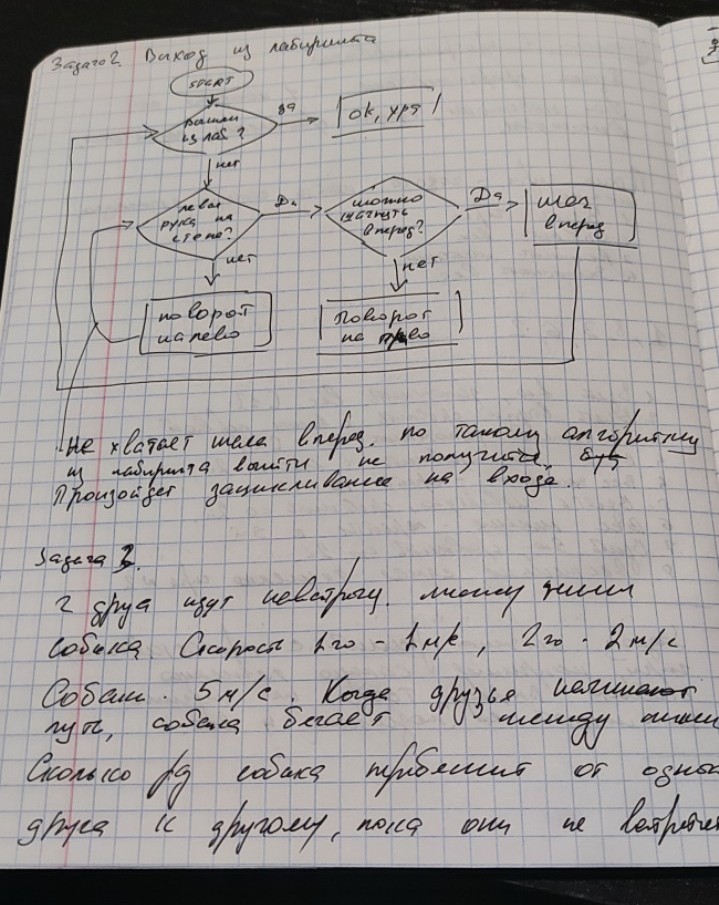 Задача 2. Выход из лабиринта
START
вышли
из лаб?
да
ок, ура
нет
левая
рука на
стене?
Да
можно
шагнуть
вперед?
Да
шаг
вперед
нет
нет
поворот
налево
Поворот
на право
Не хватает шага вперед. по такому алгоритму
из лабиринта выйти не получится
Произойдет зацикливание на входе.
Задача 3.
2 друга идут навстречу. между ними
собака. Скорость 1го - 1 м/с, 2го - 2 м/с
Собаки - 5 м/с. Когда друзья начинают
путь, собака бегает между ними
Сколько раз собака перебежит от одного
друга к другому, пока они не встретят